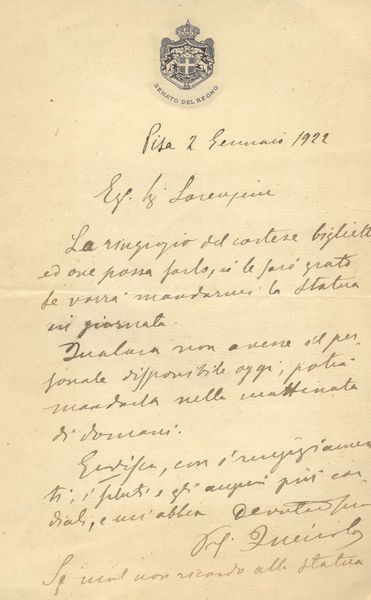 SENATO DEL REGNO
Pisa 2 Gennaio 1922
Eg. Sig. Lorenzini
La ringrazio del cortese biglietto
ed ove possa farlo, io le sarò grato
se vorrà mandarmi la statua
in giornata.
Qualora non avesse il per-
sonale disponibile oggi, potrà
mandarla nella mattinata
di domani.
Gradisca, con i ringraziamen-
ti, i saluti e gli auguri più cor-
diali, e mi abbia
Queirolo
Se mal non ricordo alla statua